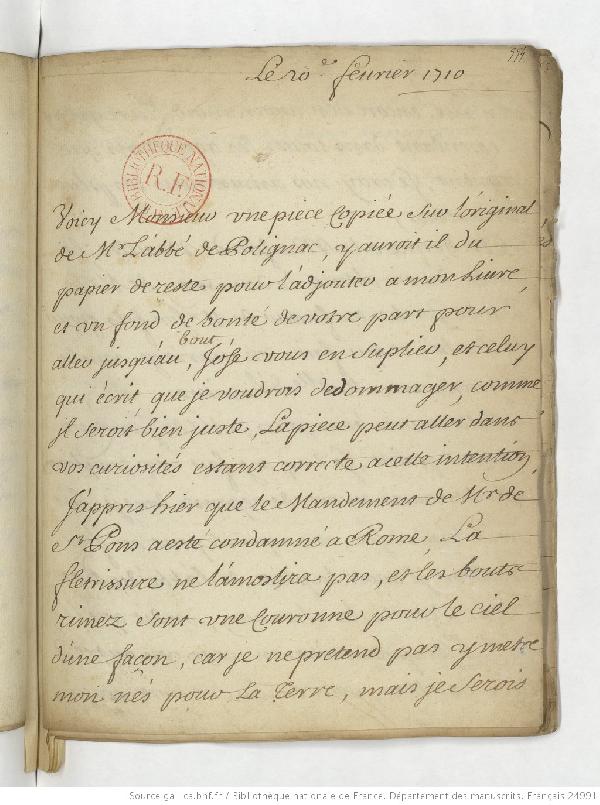 Le 20.e février 1710
BIBLIOTHEQUE NATIONALE
R.F
Voicy Monsieur vne piece Copiée Sur l'original
de Mr L'abbé de Polignac, y auroit il du
papier de reste pour l'adjouter a mon Liure,
et vn fond de bonté de votre part pour
aller jusqu'au bout, J'ose vous en Suplier, et celuy
qui écrit que je voudrois dedommager, comme
jl Seroit bien juste, La piece peut aller dans
vos curiosités estant correcte a cette intention,
J'appris hier que le Mandement de Mr de
St Pons a esté condamné à Rome, La
fletrissure ne l'amostira pas, et les bouts
rimez sont vne Couronne pour le ciel
d'une façon, car je ne pretend pas y metre
mon nés pour La Terre, mais je Serois
Source gallica.bnf.fr / Bibliothèque nationale de France. Département des manuscrits. Français 24991